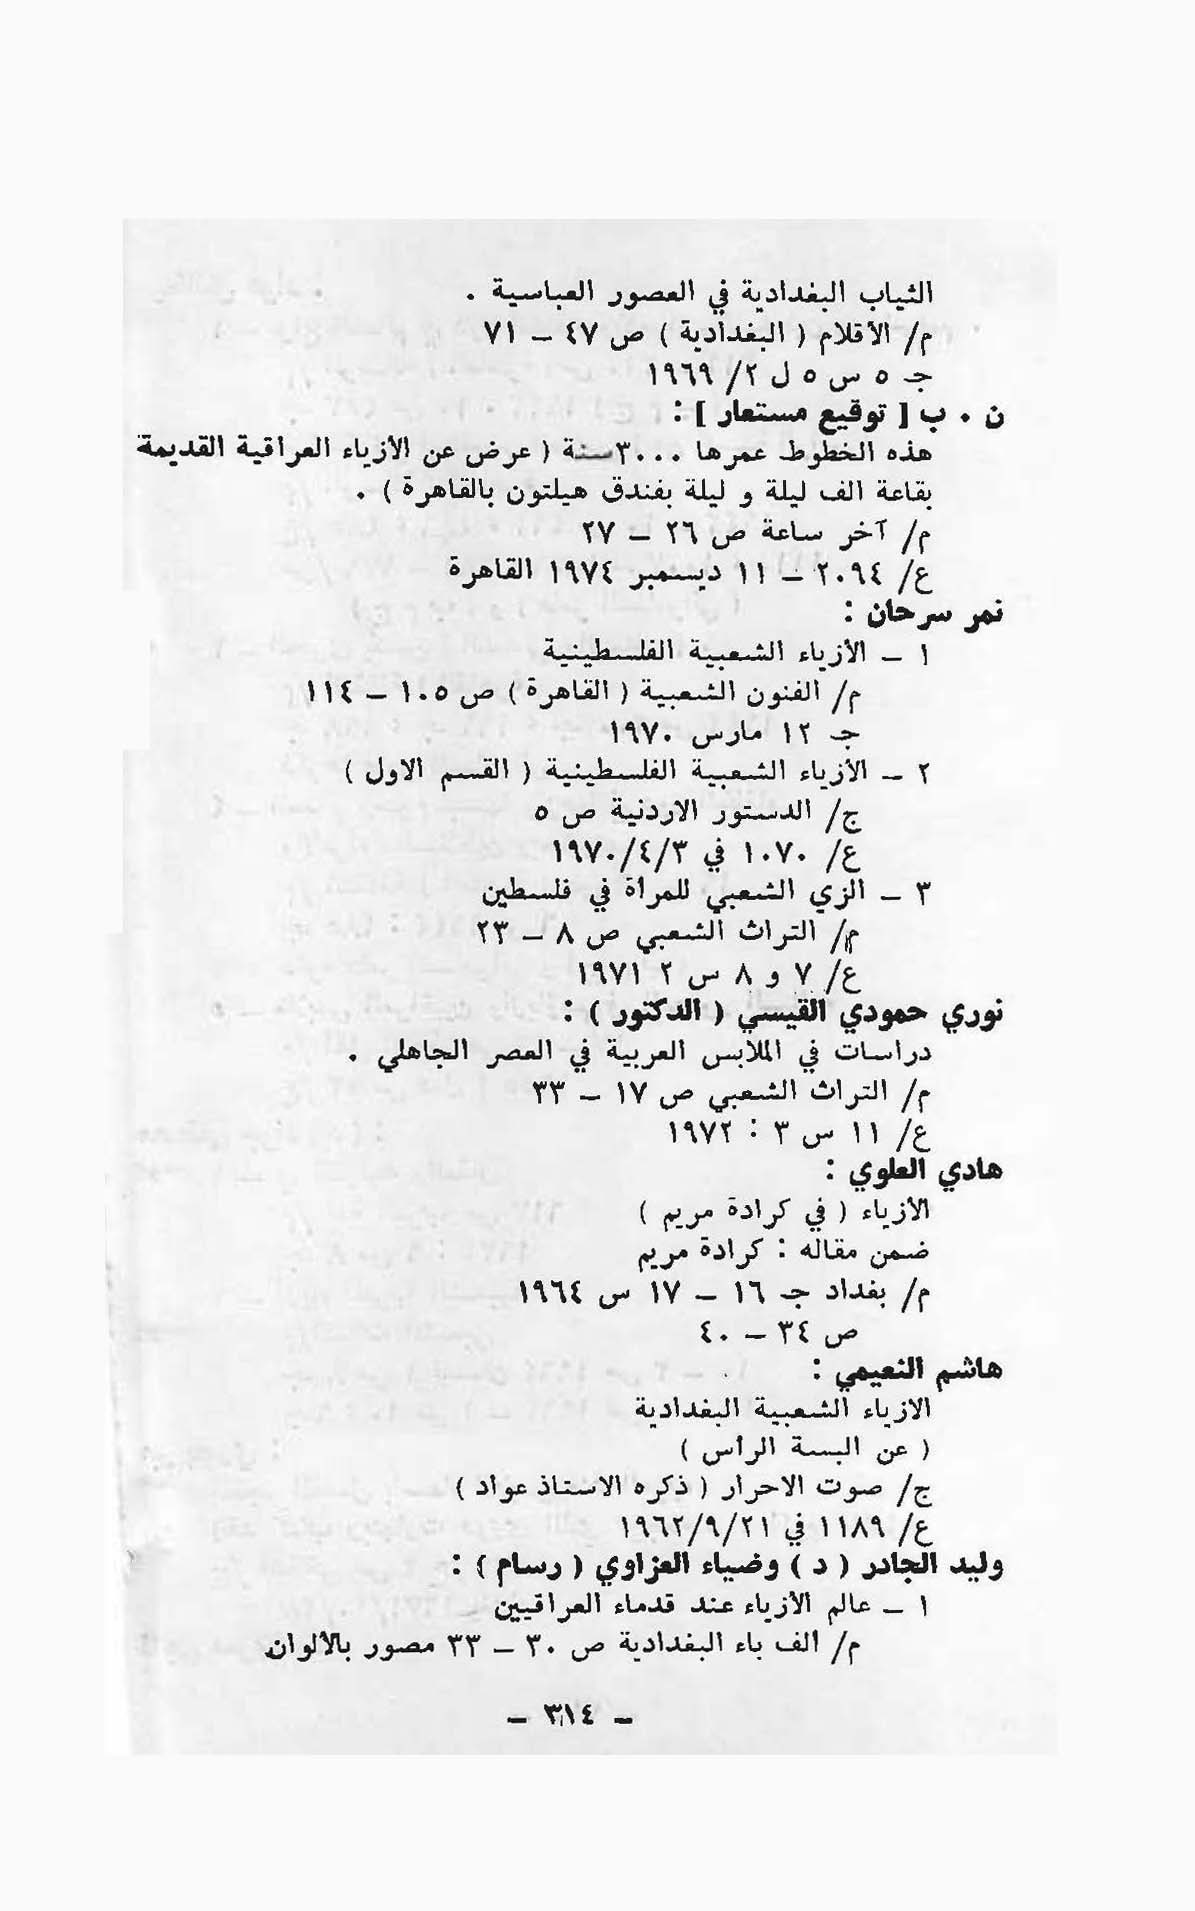 الثياب البغدادية في العصور العباسية .
م/ الأقلام ( البغدادية ) ص ٤٧ – ٧١
جـ ٥ س ٥ ل ٢/ ١٩٦٩
ن . ب [ توقيع مستعار ] :
هذه الخطوط عمرها ٣٠٠٠ سنة ( عرض عن الأزياء العراقية القديمة
بقاعة الف ليلة و ليلة بفندق هيلتون بالقاهرة ) .
م/ آخر ساعة ص ٢٦ – ٢٧
ع/ ٢٠٩٤ – ١١ ديسمبر ١٩٧٤ القاهرة
نمر سرحان :
١ – الأزياء الشعبية الفلسطينية
م/ الفنون الشعبية ( القاهرة ) ص ١٠٥ – ١١٤
جـ ١٢ مارس ١٩٧٠
٢ – الأزياء الشعبية الفلسطينية ( القسم الاول )
ج/ الدستور الاردنية ص ٥
ع/ ١٠٧٠ في ١٩٧٠/٤/٣
٣ – الزي الشعبي للمرأة في فلسطين
م/ التراث الشعبي ص ٨ – ٢٣
ع/ ٧ و ٨ س ٢ ١٩٧١
نوري حمودي القيسي ( الدكتور ) :
دراسات في الملابس العربية في العصر الجاهلي .
م/ التراث الشعبي ص ١٧ – ٣٣
ع/ ١١ س ٣ : ١٩٧٢
هادي العلوي :
الأزياء ( في كرادة مريم )
ضمن مقاله : كرادة مريم
م/ بغداد جـ ١٦ – ١٧ س ١٩٦٤
ص ٣٤ – ٤٠
هاشم النعيمي :
الازياء الشعبية البغدادية
( عن البسة الرأس )
ج/ صوت الاحرار ( ذكره الاستاذ عواد )
ع/ ١١٨٩ في ١٩٦٢/٩/٢١
وليد الجادر ( د ) وضياء العزاوي ( رسام ) :
١ – عالم الأزياء عند قدماء العراقيين
م/ الف باء البغدادية ص ٣٠ – ٣٣ مصور بالألوان
– ٣١٤ –